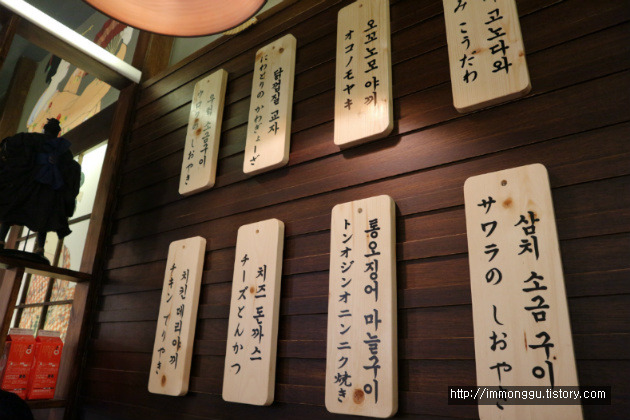 소금구이
しおやき
닭껍질 교자
にわとりの かわぎょーざ
오꼬노모 야끼
オコノモヤキ
고노다와
こうだわ
치킨 데리야끼
チキン デリやき
치즈 돈까스
チーズとんかつ
통오징어 마늘구이
トンオジンオニンニク焼き
삼치 소금 구이
サワラの しおやき
http://immonggu.tistory.com